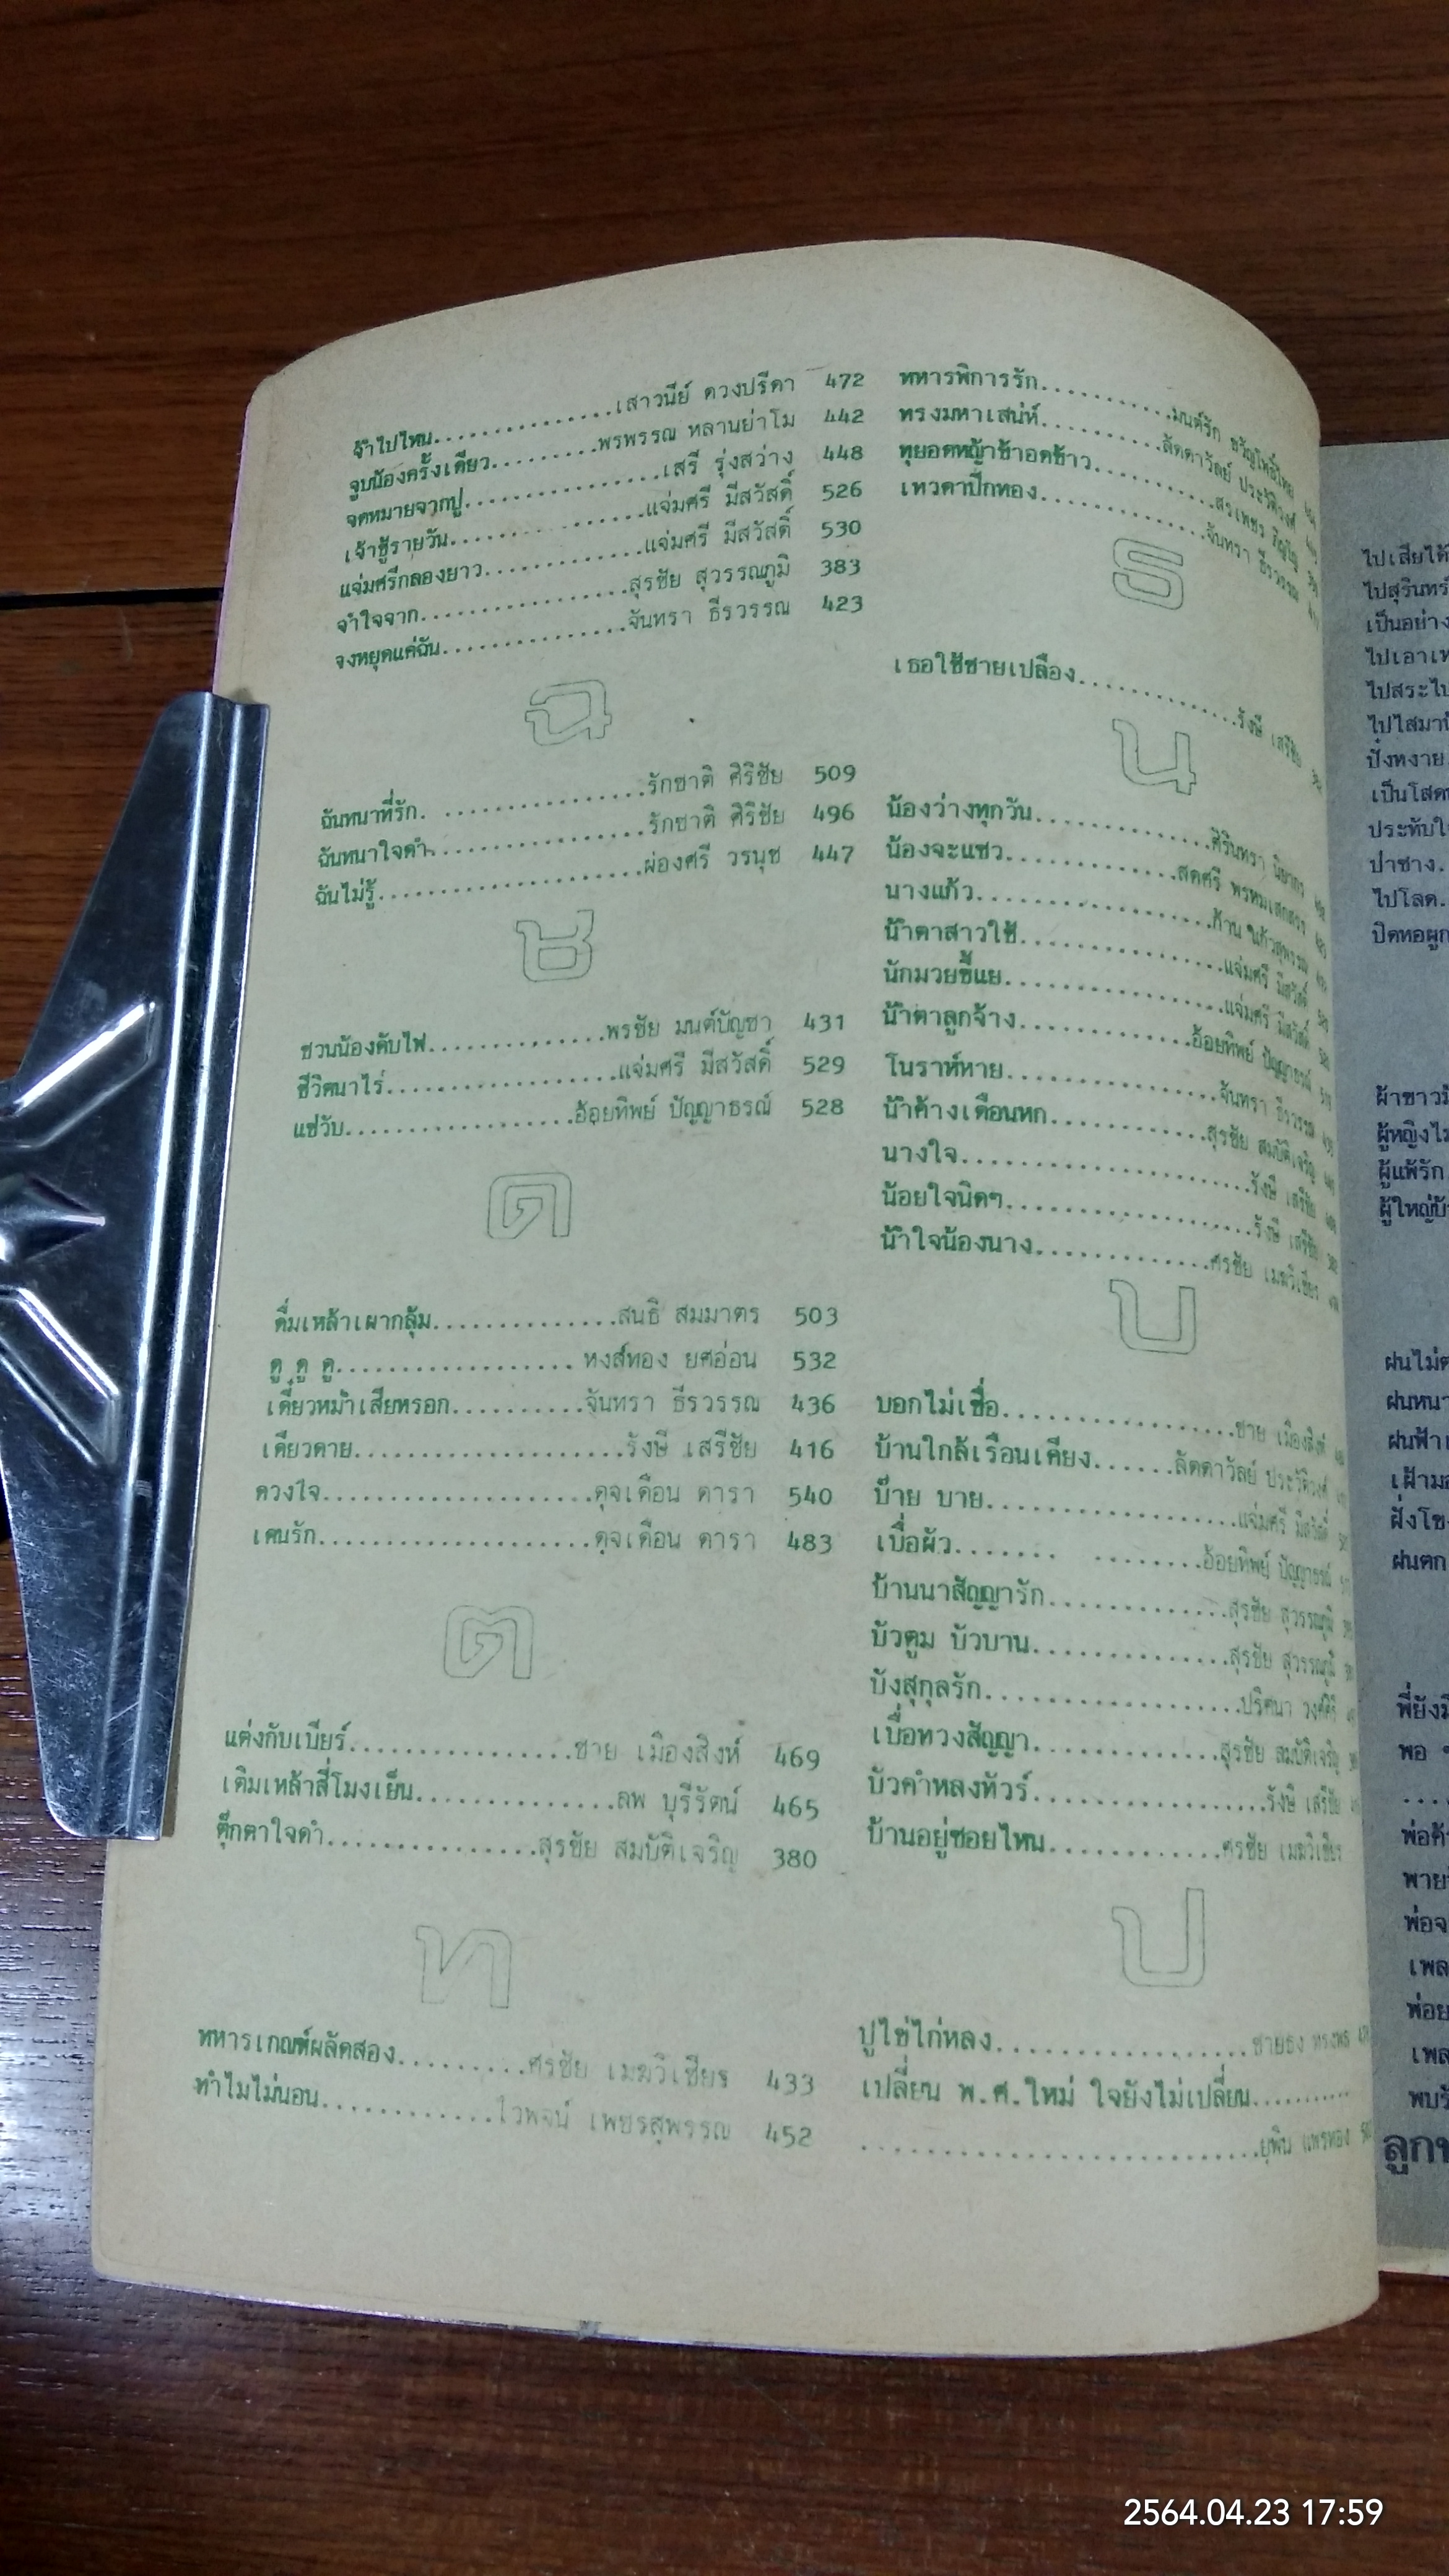 จ๋าไปไหน..............เสาวนีย์ ดวงปรีดา 472
จูบน้องครั้งเดียว.........พรพรรณ หลานย่าโม 442
จดหมายจากปู................เสรี รุ่งสว่าง 448
เจ้าชู้รายวัน................แจ่มศรี มีสวัสดิ์ 526
แจ่มศรีกลองยาว.............แจ่มศรี มีสวัสดิ์ 530
จำใจจาก.................สุรชัย สุวรรณภูมิ 383
จงหยุดแค่ฉัน...............จันทรา ธีรวรรณ 423
ฉ
ฉันทนาที่รัก. ................รักชาติ ศิริชัย 509
ฉันทนาใจดำ.................รักชาติ ศิริชัย 496
ฉันไม่รู้.....................ผ่องศรี วรนุช 447
ช
ชวนน้องดับไฟ..............พรชัย มนต์บัญชา 431
ชีวิตนาไร่..................แจ่มศรี มีสวัสดิ์ 529
แช่วับ..................อ้อยทิพย์ ปัญญาธรณ์ 528
ด
ดื่มเหล้าเผากลุ้ม..............สนธิ สมมาตร 503
ดู ดู ดู.................. หงส์ทอง ยศอ่อน 532
เดี๋ยวหม่ำเสียหรอก..........จันทรา ธีรวรรณ 436
เดียวดาย....................รังษี เสรีชัย 416
ดวงใจ....................ดุจเดือน ดารา 540
เดนรัก....................ดุจเดือน ดารา 483
ต
แต่งกับเบียร์................ชาย เมืองสิงห์ 469
เติมเหล้าสี่โมงเย็น..............ลพ บุรีรัตน์ 465
ตุ๊กตาใจดำ...............สุรชัย สมบัติเจริญ 380
ท
ทหารเกณฑ์ผลัดสอง.........ศรชัย เมฆวิเชียร 433
ทำไมไม่นอน............ไวพจน์ เพชรสุพรรณ 452
ทหารพิการรัก..........มนต์รัก ขวัญโพธิ์ไทย
ทรงมหาเสน่ห์..........ลัดดาวัลย์ ประวัติวงศ์
ทุยอดหญ้าข้าอดข้าว............สรเพชร
เทวดาปีกทอง..............จันทรา ธีรวรรณ
ธ
เธอใช้ชายเปลือง..............รังษี เสรีชัย
น
น้องว่างทุกวัน..............ศิรินทรา นิยากร
น้องจะแซว..............สดศรี พรหมเสกสรร
นางแก้ว..................ก้าน แก้วสุพรรณ
น้ำตาสาวใช้................แจ่มศรี มีสวัสดิ์
นักมวยขี้แย.................แจ่มศรี มีสวัสดิ์
น้ำตาลูกจ้าง.............อ้อยทิพย์ ปัญญาธรณ์
โนราห์หาย................จันทรา ธีรวรรณ
น้ำค้างเดือนหก............สุรชัย สมบัติเจริญ
นางใจ......................รังษี เสรีชัย
น้อยใจนิดๆ..................รังษี เสรีชัย
น้ำใจน้องนาง..............ศรชัย เมฆวิเชียร
บ
บอกไม่เชื่อ..................ชาย เมืองสิงห์
บ้านใกล้เรือนเคียง......ลัดดาวัลย์ ประวัติวงศ์
บ๊าย บาย...................แจ่มศรี มีสวัสดิ์
เบื่อผัว....... ........อ้อยทิพย์ ปัญญาธรณ์
บ้านนาสัญญารัก.............สุรชัย สุวรรณภูมิ
บัวตูม บัวบาน...............สุรชัย สุวรรณภูมิ
บังสุกุลรัก....................ปริศนา วงศ์ศิริ
เบื่อทวงสัญญา..............สุรชัย สมบัติเจริญ
บัวคำหลงทัวร์.................รังษี เสรีชัย
บ้านอยู่ซอยไหน.............ศรชัย เมฆวิเชียร
ป
ปูไข่ไก่หลง..................ชายธง ทรงพล
เปลี่ยน พ.ศ.ใหม่ ใจยังไม่เปลี่ยน...........
...............................ยุพิน แพรทอง
ไปเสียได้
ไปสุรินทร์
เป็นอย่าง
ไปเอาเ
ไปสระไ
ไปไสมา
ปิ้งหงาย
เป็นโสด
ประทับใ
ป่าซาง.
ไปโลด.
ปิดทอ
ผ้าขาว
ผู้หญิงไ
ผู้แพ้รัก
ผู้ใหญ่บ้
ฝนไม่ต
ฝนหน
ฝนฟ้า
เฝ้าม
ฝั่งโข
ฝนตก
พี่ยังมี
พอ
พ่อค้
พาย
พ่อจ
เพล
พ่อย
เพล
พบรั
ลูกท
2564.04.23 17:59